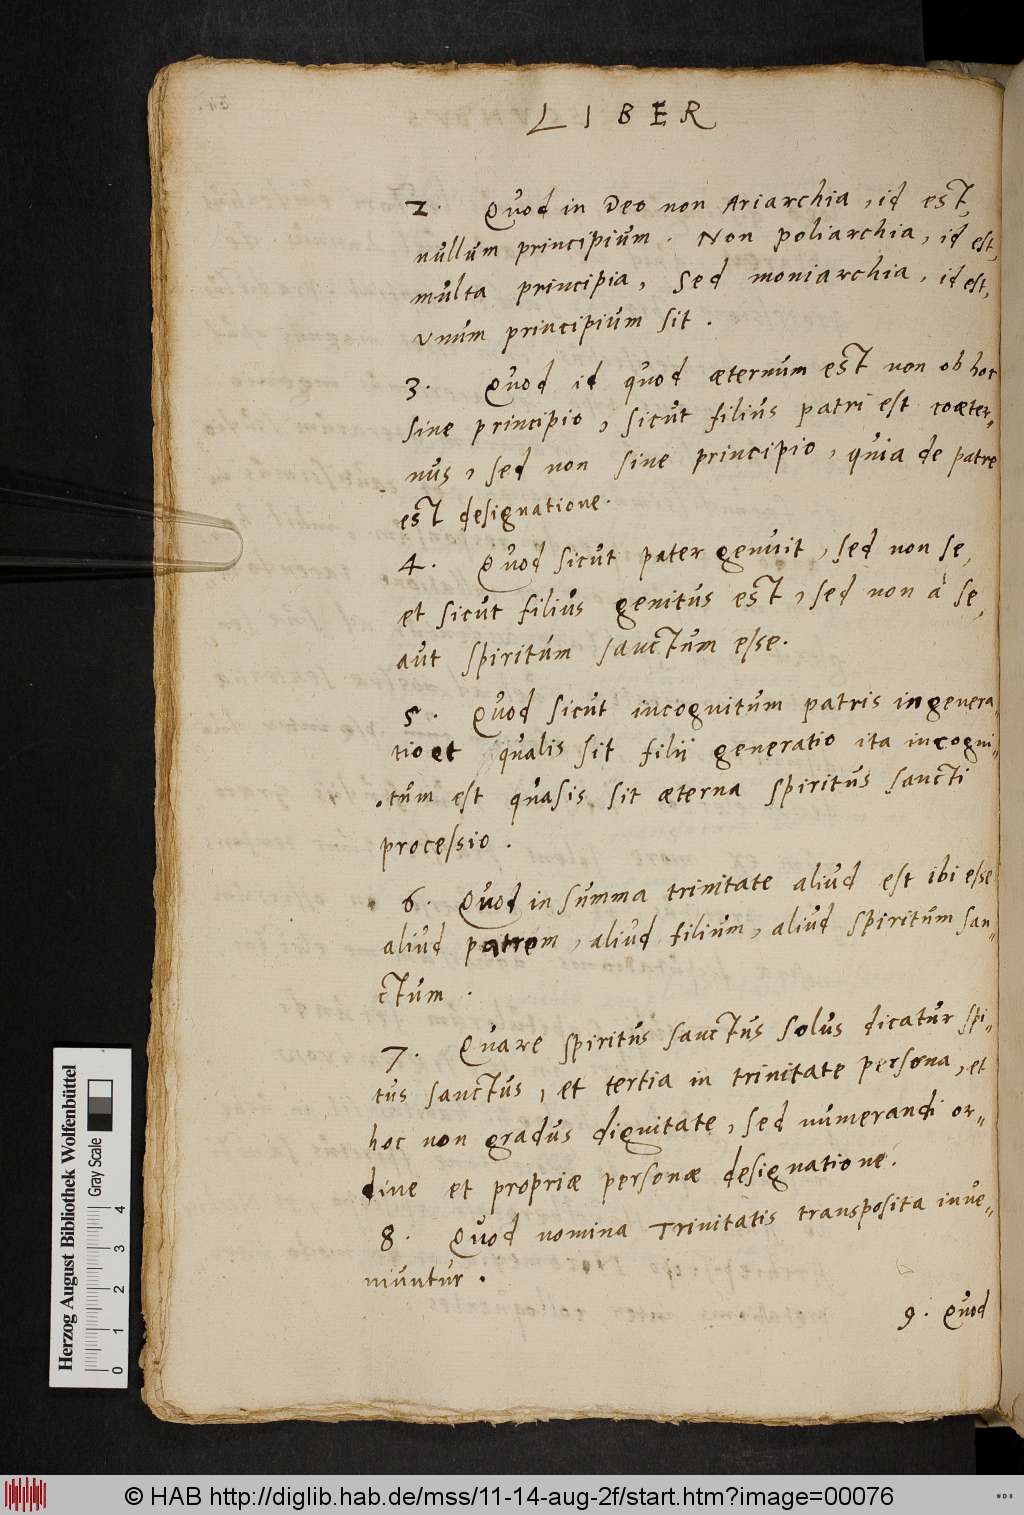 LIBER
2. Quod in Deo non Ariarchia, id est,
nullum principium. Non poliarchia, id est,
multa principia, sed moniarchia, id est,
vnum principium sit.
3. Quod id quod æternum est non ob hoc
sine principio, sicut filius patri est coæter-
nus, sed non sine principio, quia de patre
est designatione.
4. Quod sicut pater genuit, sed non se,
et sicut filius genitus est, sed non à se,
aut spiritum sanctum esse.
5. Quod sicut incognitum patris ingenera-
tio et qualis sit filij generatio ita incogni-
tum est quasis sit æterna spiritus sancti
processio.
6. Quod in summa trinitate aliud est ibi esse
aliud patrem, aliud filium, aliud spiritum san-
ctum.
7. Quare spiritus sanctus solus dicatur spi-
tus sanctus, et tertia in trinitate persona, et
hoc non gradus dignitate, sed numerandi or-
dine et propriæ personæ designatione.
8. Quod nomina Trinitatis transposita inue-
niuntur.
9. Quod
Herzog August Bibliothek Wolfenbüttel
Gray Scale
0 1 2 3 4
© HAB http://diglib.hab.de/mss/11-14-aug-2f/start.htm?image=00076